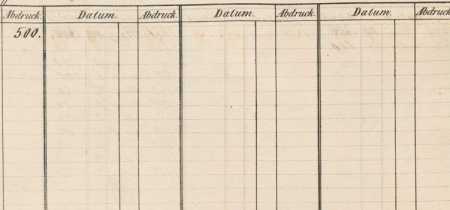 Abdruck. Datum. Abdruck. Datum. Abdruck. Datum. Abdruck.
500.